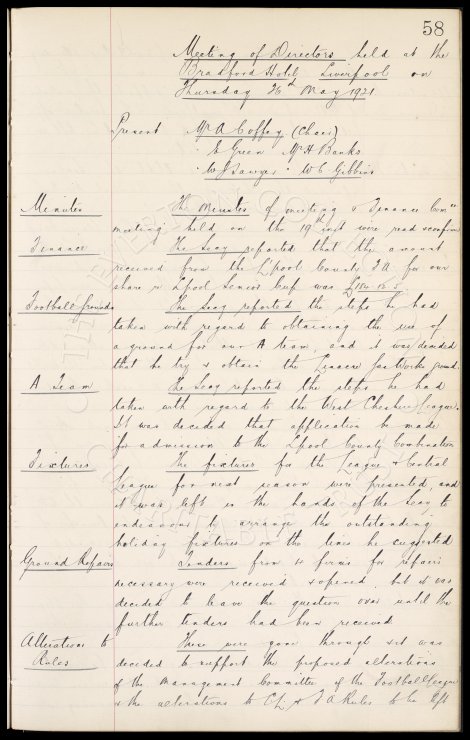 58
Meeting of Directors held at the
Bradford Hotel, Liverpool on
Thursday 26th May 1921
Present Mr A Coffey (Chair)
" E Green Mr H Banks
" W J Sawyer " W C Gibbins
Minutes The Minutes of meeting & Finance Com"ee
meeting held on the 19th inst were read & confirm
Finance The Secy reported that the amount
received from the L'pool County F A for our
share in Lpool Senior Cup was £184.12.5.
Football Grounds The Secy reported the steps he had
taken with regard to obtaining the use of
a ground for our A team, and it was decided
that he try & obtain the Linacre Gas Works ground.
A Team The Secy reported the steps he had
taken with regard to the West Cheshire League.
It was decided that application be made
for admission to the Lpool County Combination
Fixtures The fixtures for the League & Central
League for next season were presented, and
it was left in the hands of the Secy to
endeavour to arrange the outstanding
holiday fixtures on the lines he suggested
Ground Repairs Tenders from 4 firms for repairs
necessary were received & opened, but it was
decided to leave the question over until the
further tenders had been received
Alterations to Rules These were gone through & it was
decided to support the proposed alterations
of the Management Committee of the Football League
& the alterations to C L & F A Rules to be left